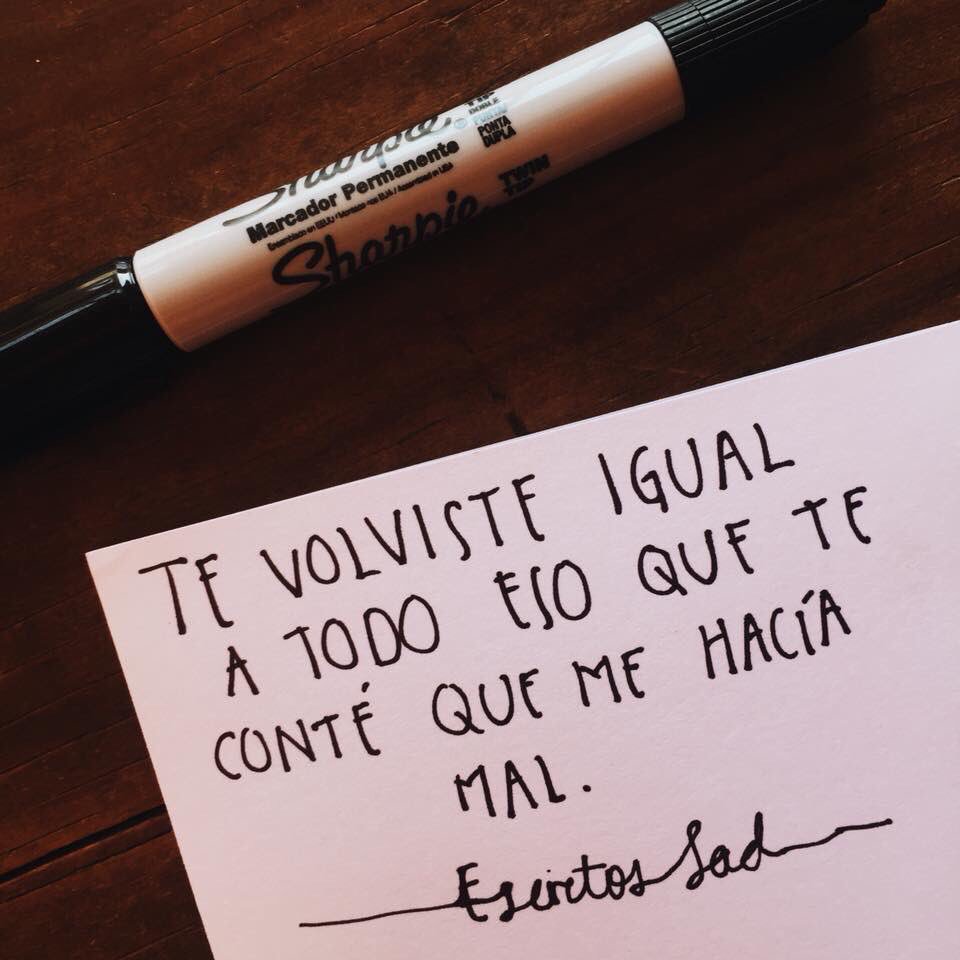 Sharpie
TWIN TIP
DOBLE PUNTA
PONTA DUPLA
Marcador Permanente
Sharpie
TWIN TIP
TE VOLVISTE IGUAL
A TODO ESO QUE TE
CONTÉ QUE ME HACÍA
MAL.
Escritos Sad